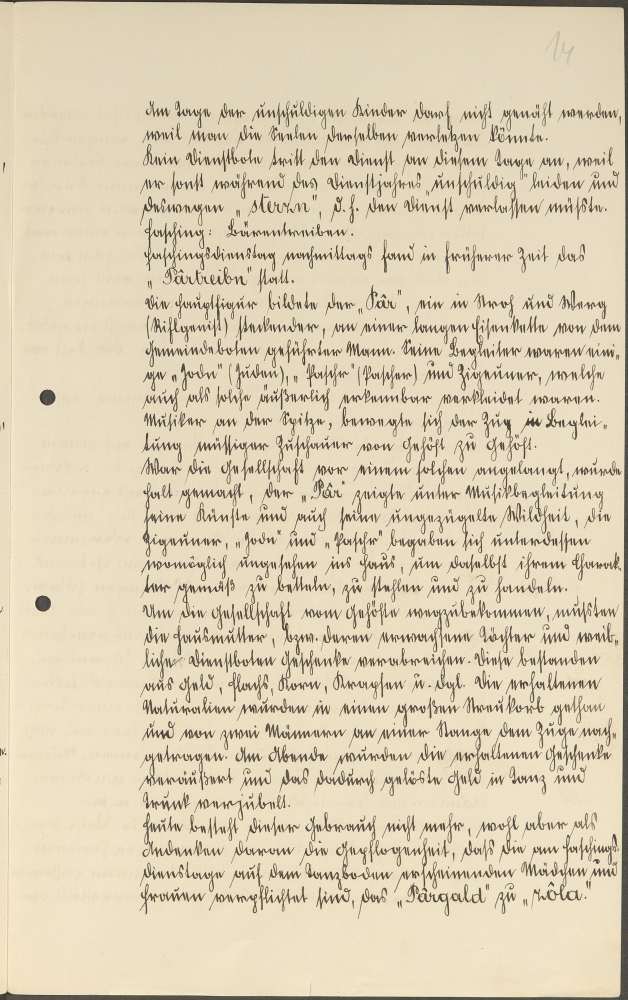 14
Am Tage der unschuldigen Kinder darf nicht genäht werden,
weil man die Seelen derselben verletzen könnte.
Kein Dienstbote tritt den Dienst an diesem Tage an, weil
er sonst während des Dienstjahres „unschuldig" leiden und
deswegen „sterzn", d. h. den Dienst verlassen müsste.
Fasching: Bärentreiben.
Faschingsdienstag nachmittags fand in früherer Zeit das
„Pârtreibn" statt.
Die Hauptfigur bildete der „Pâr", ein in Stroh und Werg
(Riflgenist) steckender, an einer langen Eisenkette von dem
Gemeindeboten geführter Mann. Seine Begleiter waren eini-
ge „Jodn" (Juden), „Paschr" (Pascher) und Zigeuner, welche
auch als solche äußerlich erkennbar verkleidet waren.
Musiker an der Spitze, bewegte sich der Zug in Beglei-
tung müssiger Zuschauer von Gehöft zu Gehöft.
War die Gesellschaft vor einem solchen angelangt, wurde
halt gemacht, der „Pâr" zeigte unter Musikbegleitung
seine Künste und auch seine ungezügelte Wildheit, die
Zigeuner, „Jodn" und „Paschr" begaben sich unterdessen
womöglich ungesehen ins Haus, um daselbst ihrem Charak-
ter gemäß zu betteln, zu stehlen und zu handeln.
Um die Gesellschaft vom Gehöfte wegzubekommen, mussten
die Hausmutter, bzw. deren erwachsene Töchter und weib-
liche Dienstboten Geschenke verabreichen. Diese bestanden
aus Geld, Flachs, Korn, Krapfen u. dgl. Die erhaltenen
Naturalien wurden in einen großen Streukorb gethan
und von zwei Männern an einer Stange dem Zuge nach-
getragen. Am Abende wurden die erhaltenen Geschenke
veräußert und das dadurch gelöste Geld in Tanz und
Trunk verjubelt.
Heute besteht dieser Gebrauch nicht mehr, wohl aber als
Andenken daran die Gepflogenheit, dass die am Faschings-
dienstage auf dem Tanzboden erscheinenden Mädchen und
Frauen verpflichtet sind, das „Pârgald" zu „zôla."